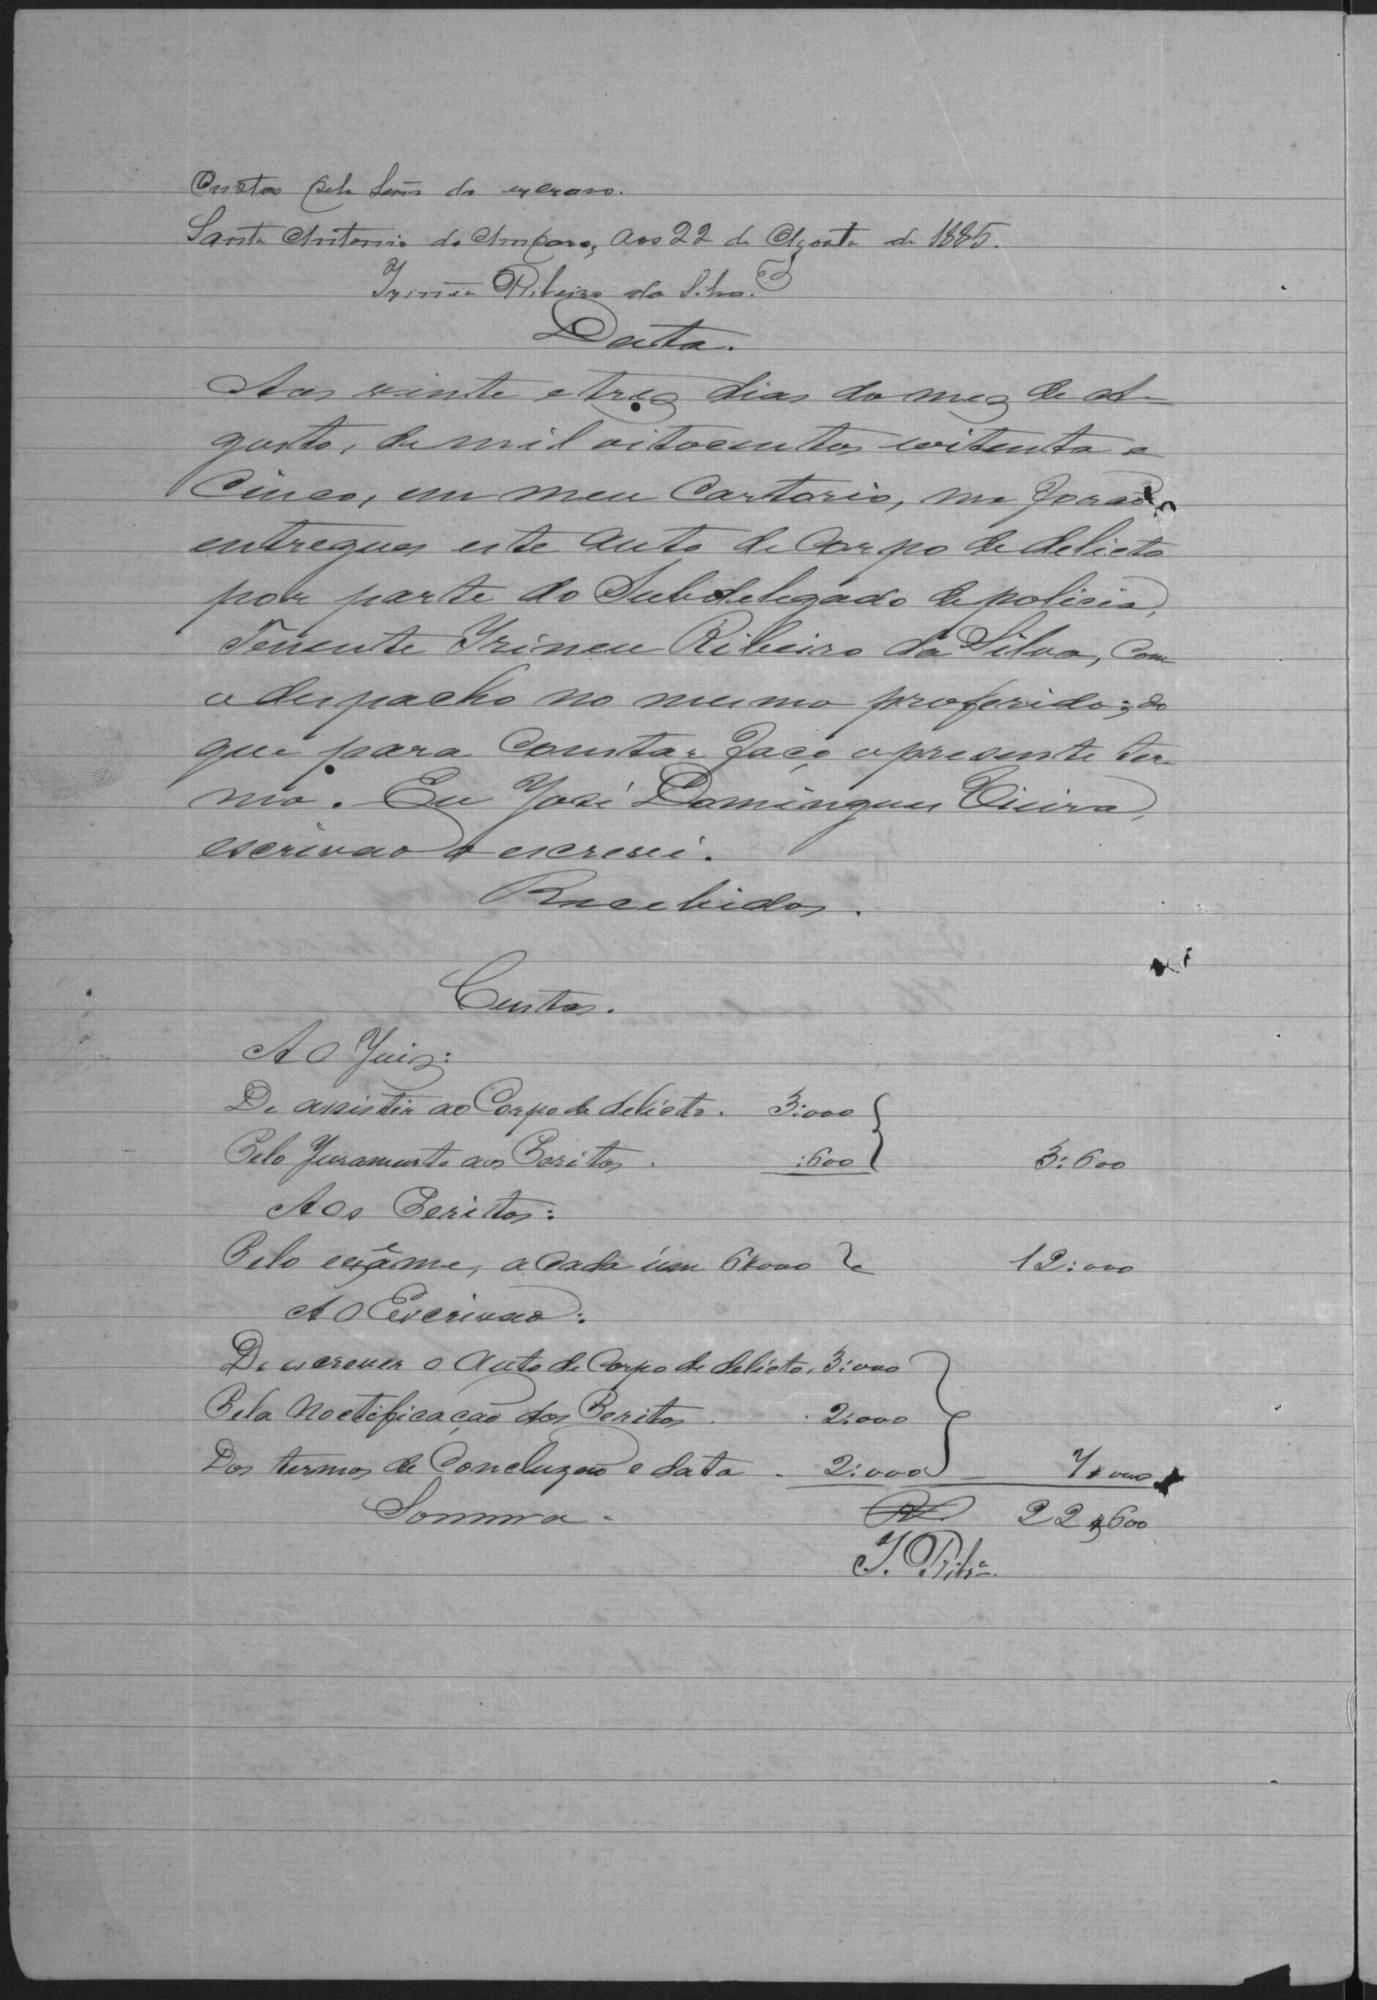 Custas pelo Senr do escravo.
Santo Antonio do Amparo, aos 22 de Agosto de 1885.
Irineu Ribeiro da Silva.
Data.
Aos vinte e tres dias do mez de A-
gosto, de mil oitocentos e oitenta e
cinco, em meu Cartorio, me forão
entregues este auto de Corpo de delicto
por parte do Subdelegado de policia,
Tenente Irineu Ribeiro da Silva, com
o despacho no mesmo proferido; do
que para constar faço o presente ter-
mo. Eu José Domingues Vieira,
escrivão o escrevi.
Recebidos.
Custas.
Ao Juiz:
De assistir ao Corpo de delicto. 3:000
Pelo Juramento aos Peritos. :600 3:600
Aos Peritos:
Pelo exáme, a cada um 6:000 12:000
Ao Escrivão:
De escrever o Auto de Corpo de delicto, 3:000
Pela Noctificação dos Peritos. 2:000
Dos termos de Concluzão e data. 2:000 7:000
Somma. 22$600
I. Ribro